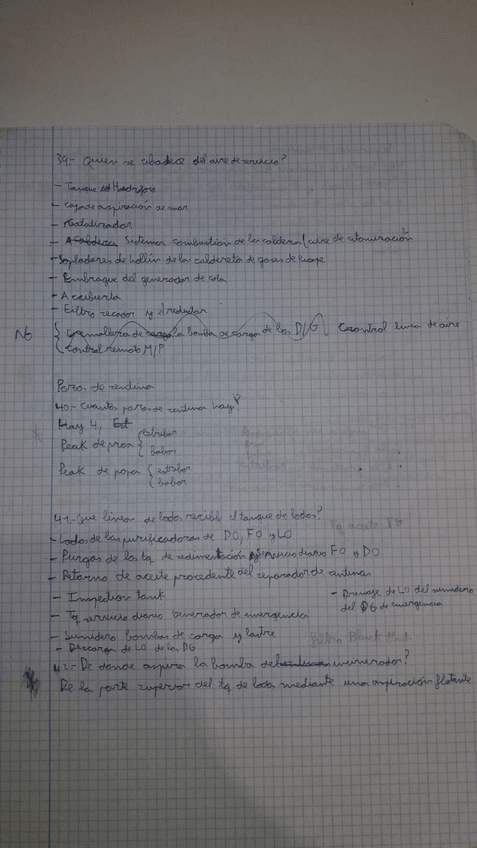 39.- Quien se abastece del aire de servicio?
- Tanque Hidrófore
- Caja de aspiración de mar
- Sistema combustión de la caldera (aire de atomización
- Sopladores de hollín de la caldereta de gases de escape
- Embrague del generador de cola
- A cubierta
- Filtro secador y el reductor
NO { Cremallera de la bomba de carga de los D/G Control linea de aire
Control remoto M/P
Pozos de sentina
40.- Cuantos pozos de sentina hay?
Hay 4,
Peak de proa { estribor
babor
Peak de popa { estribor
babor
41.- Que líneas de lodo recibe el tanque de lodos?
- Lodos de las purificadoras de DO, FO y LO
- Purgas de los tq de sedimentación y servicio diario FO y DO
- Retorno de aceite procedente del separador de sentinas
- Inspection tank
- Drenaje de LO del sumidero
del DG de emergencia
- Tq servicio diario Generador de emergencia
- Sumidero bombas de carga y lastre
- Descarga de LO de los DG
42.- De donde aspira la bomba del incinerador?
De la parte superior del tq de lodos mediante una aspiración flotante